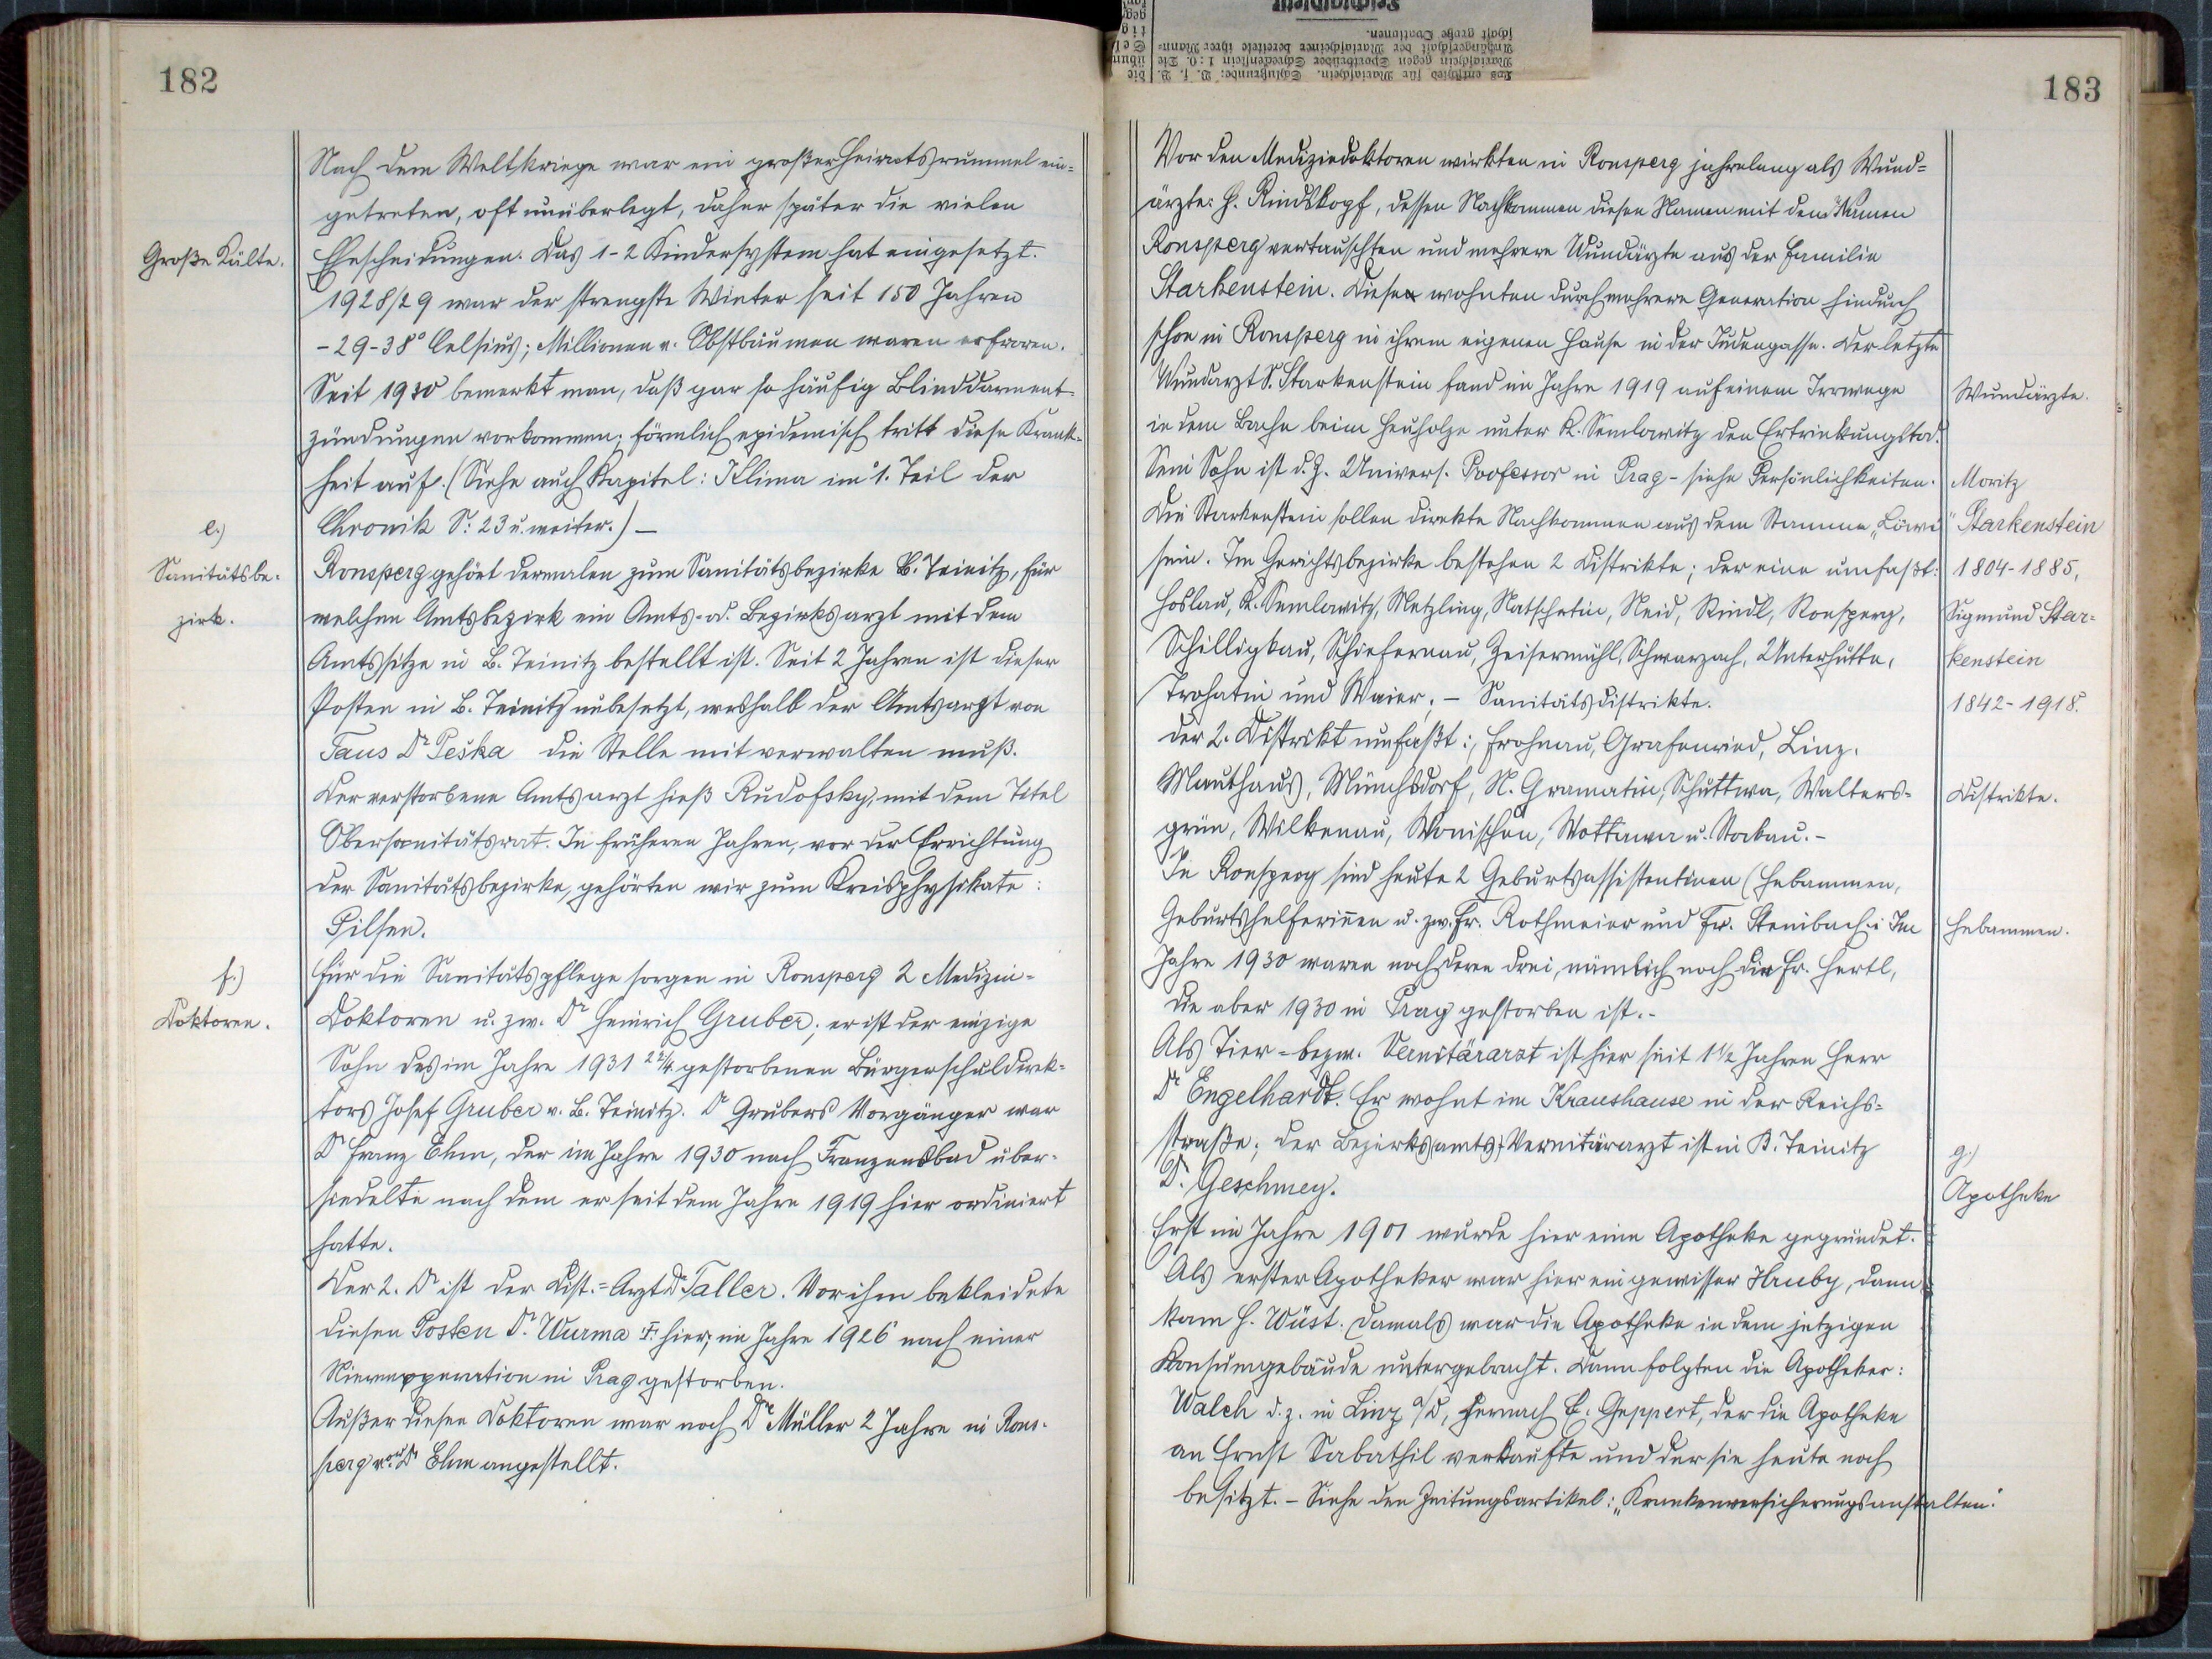 182
Nach dem Weltkriege war ein großer Heiratsrummel ein-
getreten, oft unüberlegt, daher später die vielen
Große Kälte.
Ehescheidungen. Das 1-2 Kindersystem hat eingesetzt.
1928/29 war der strengste Winter seit 150 Jahren
-29-38° Celsius; Millionen v. Obstbäumen waren erfroren.
Seit 1930 bemerkt man, daß gar so häufig Blinddarment-
zündungen vorkommen; förmlich epidemisch tritt diese Krank-
heit auf. (Siehe auch Kapitel: Klima im 1. Teil der
Chronik S: 23 u. weiter.) –
e.)
Sanitätsbe-
zirk.
Ronsperg gehört dermalen zum Sanitätsbezirke B. Teinitz, für
welchen Amtsbezirk ein Amts- od. Bezirksarzt mit dem
Amtssitze in B. Teinitz bestellt ist. Seit 2 Jahren ist dieser
Posten in B. Teinitz unbesetzt, weshalb der Amtsarzt von
Taus Dr Peška die Stelle mit verwalten muß.
Der verstorbene Amtsarzt hieß Rudofsky, mit dem Titel
Obersanitätsrat. In früheren Jahren, vor der Errichtung
der Sanitätsbezirke, gehörten wir zum Kreisphysikate:
Pilsen.
f.)
Doktoren.
Für die Sanitätspflege sorgen in Ronsperg 2 Medizin-
Doktoren u. zw. Dr Heinrich Gruber; er ist der einzige
Sohn des im Jahre 1931 22/4 gestorbenen Bürgerschuldirek-
tors Josef Gruber v. B. Teinitz. Dr Grubers Vorgänger war
Dr Franz Ehm, der im Jahre 1930 nach Franzensbad über-
siedelte nach dem er seit dem Jahre 1919 hier ordiniert
hatte.
Der 2. Dr ist der Dist.=Arzt Dr Taller. Vor ihm bekleidete
diesen Posten Dr. Wurma F. hier, im Jahre 1926 nach einer
Nierenopperation in Prag gestorben.
Außer diesen Doktoren war noch Dr Müller 2 Jahre in Rons-
perg vor Dr Ehm angestellt.
183
Vor den Medizindoktoren wirkten in Ronsperg jahrelang als Wund=
ärzte: H. Rindskopf, dessen Nachkommen diesen Namen mit dem Namen
Ronsperg vertauschten und mehrere Wundärzte aus der Familie
Starkenstein. Diese wohnten durch mehrere Generation hindurch
schon in Ronsperg in ihrem eigenen Hause in der Judengasse. Der letzte
Wundarzt S. Starkenstein fand im Jahre 1919 auf einem Irrwege
in dem Bache beim Heuholze unter K. Semlowitz den Ertrinkungstod.
Sein Sohn ist d. Z. Univers. Professor in Prag - siehe Persönlichkeiten.
Die Starkenstein sollen direkte Nachkommen aus dem Stamme „Löwe“
sein. Im Gerichtsbezirke bestehen 2 Distrikte; der eine umfaßt:
Hoslau, K. Semlowitz, Metzling, Natschetin, Neid, Rindl, Ronsperg,
Schilligkau, Schiefernau, Zeisermühl, Schwarzach, Unterhütte,
Trohatin und Waier; – Sanitätsdistrikte.
Der 2. Distrikt umfaßt:, Frohnau, Grafenried, Linz,
Mauthaus, Münchsdorf, N. Gramatin, Schüttwa, Walters-
grün, Wilkenau, Wonischen, Wottawa u. Stockau. –
In Ronsperg sind heute 2 Geburtsassistentinnen (Hebammen,
Geburtshelferinnen u. zw. Fr. Rothmeier und Fr. Steinbach; Im
Jahre 1930 waren noch deren drei, nämlich noch die Fr. Hertl,
die aber 1930 in Prag gestorben ist. -
Als Tier-bezw. Vernitärarzt ist hier seit 1½ Jahren Herr
Dr Engelhardt. Er wohnt im Kraushause in der Reichs=
straße; der Bezirksamts-Vernitärarzt ist in B. Teinitz
Dr. Geschmey.
Erst im Jahre 1901 wurde hier eine Apotheke gegründet.
Als erster Apotheker war hier ein gewisser Hruby, dann
kam H. Wüst. Damals war die Apotheke in dem jetzigen
Konsumgebäude untergebracht. Dann folgten die Apotheker:
Walch d. z. in Linz a/D, hernach E. Geppert, der die Apotheke
an Ernst Sabathil verkaufte und der sie heute noch
besitzt. – Siehe den Zeitungsartikel: „Krankenversicherungsanstalten.“
Wundärzte.
Moritz
Starkenstein
1804-1885,
Sigmund Star-
kenstein
1842-1918.
Distrikte.
Hebammen.
g.)
Apotheke
Los entschied für Mariaschein. Schlußrunde: B. f. B.
Mariaschein gegen Sportbrüder Schreckenstein 1:0. Die
Anhängerschaft der Mariascheiner bereitete ihrer Mann-
schaft große Ovationen.